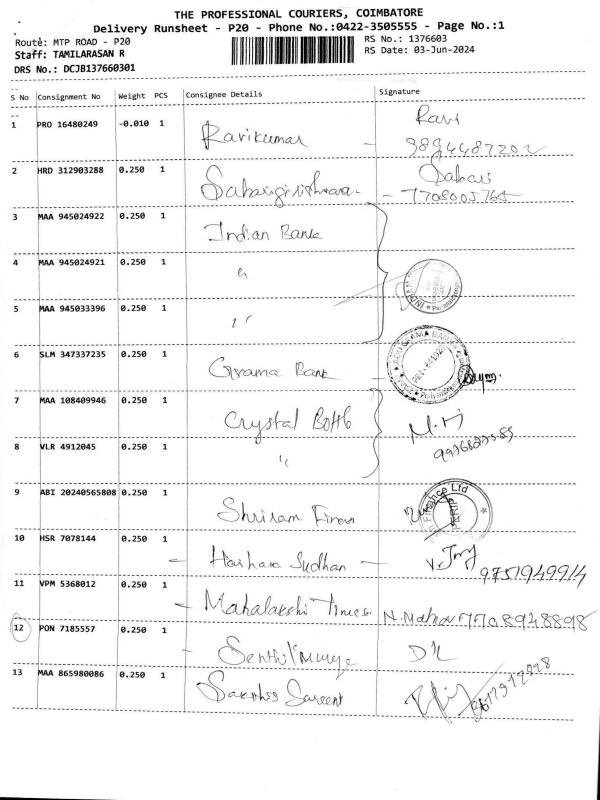 THE PROFESSIONAL COURIERS, COIMBATORE
Delivery Runsheet - P20 - Phone No.:0422-3505555 - Page No.:1
Route: MTP ROAD - P20
RS No.: 1376603
Staff: TAMILARASAN R
RS Date: 03-Jun-2024
DRS No.: DCJB137660301
S No Consignment No Weight PCS Consignee Details Signature
1 PRO 16480249 -0.010 1 Ravikumar - Ravi
9894487202
2 HRD 312903288 0.250 1 Sabari
- 7708005765
3 MAA 945024922 0.250 1 Indian Bank
4 MAA 945024921 0.250 1 "
INDIAN
5 MAA 945033396 0.250 1 "
6 SLM 347337235 0.250 1 Grama Bank -
GRAMA BANK
7 MAA 108409946 0.250 1 Crystal
8 VLR 4912045 0.250 1 "
9 ABI 20240565808 0.250 1 Shriram
Finance Ltd
10 HSR 7078144 0.250 1 - Harihara Sudhan - 9751949914
11 VPM 5368012 0.250 1 - Mahalakshi Times 7708948898
12 PON 7185557 0.250 1 -
13 MAA 865980086 0.250 1